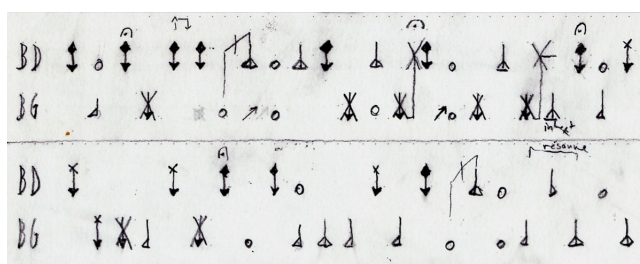 BD
BG
résonne
BD
BG